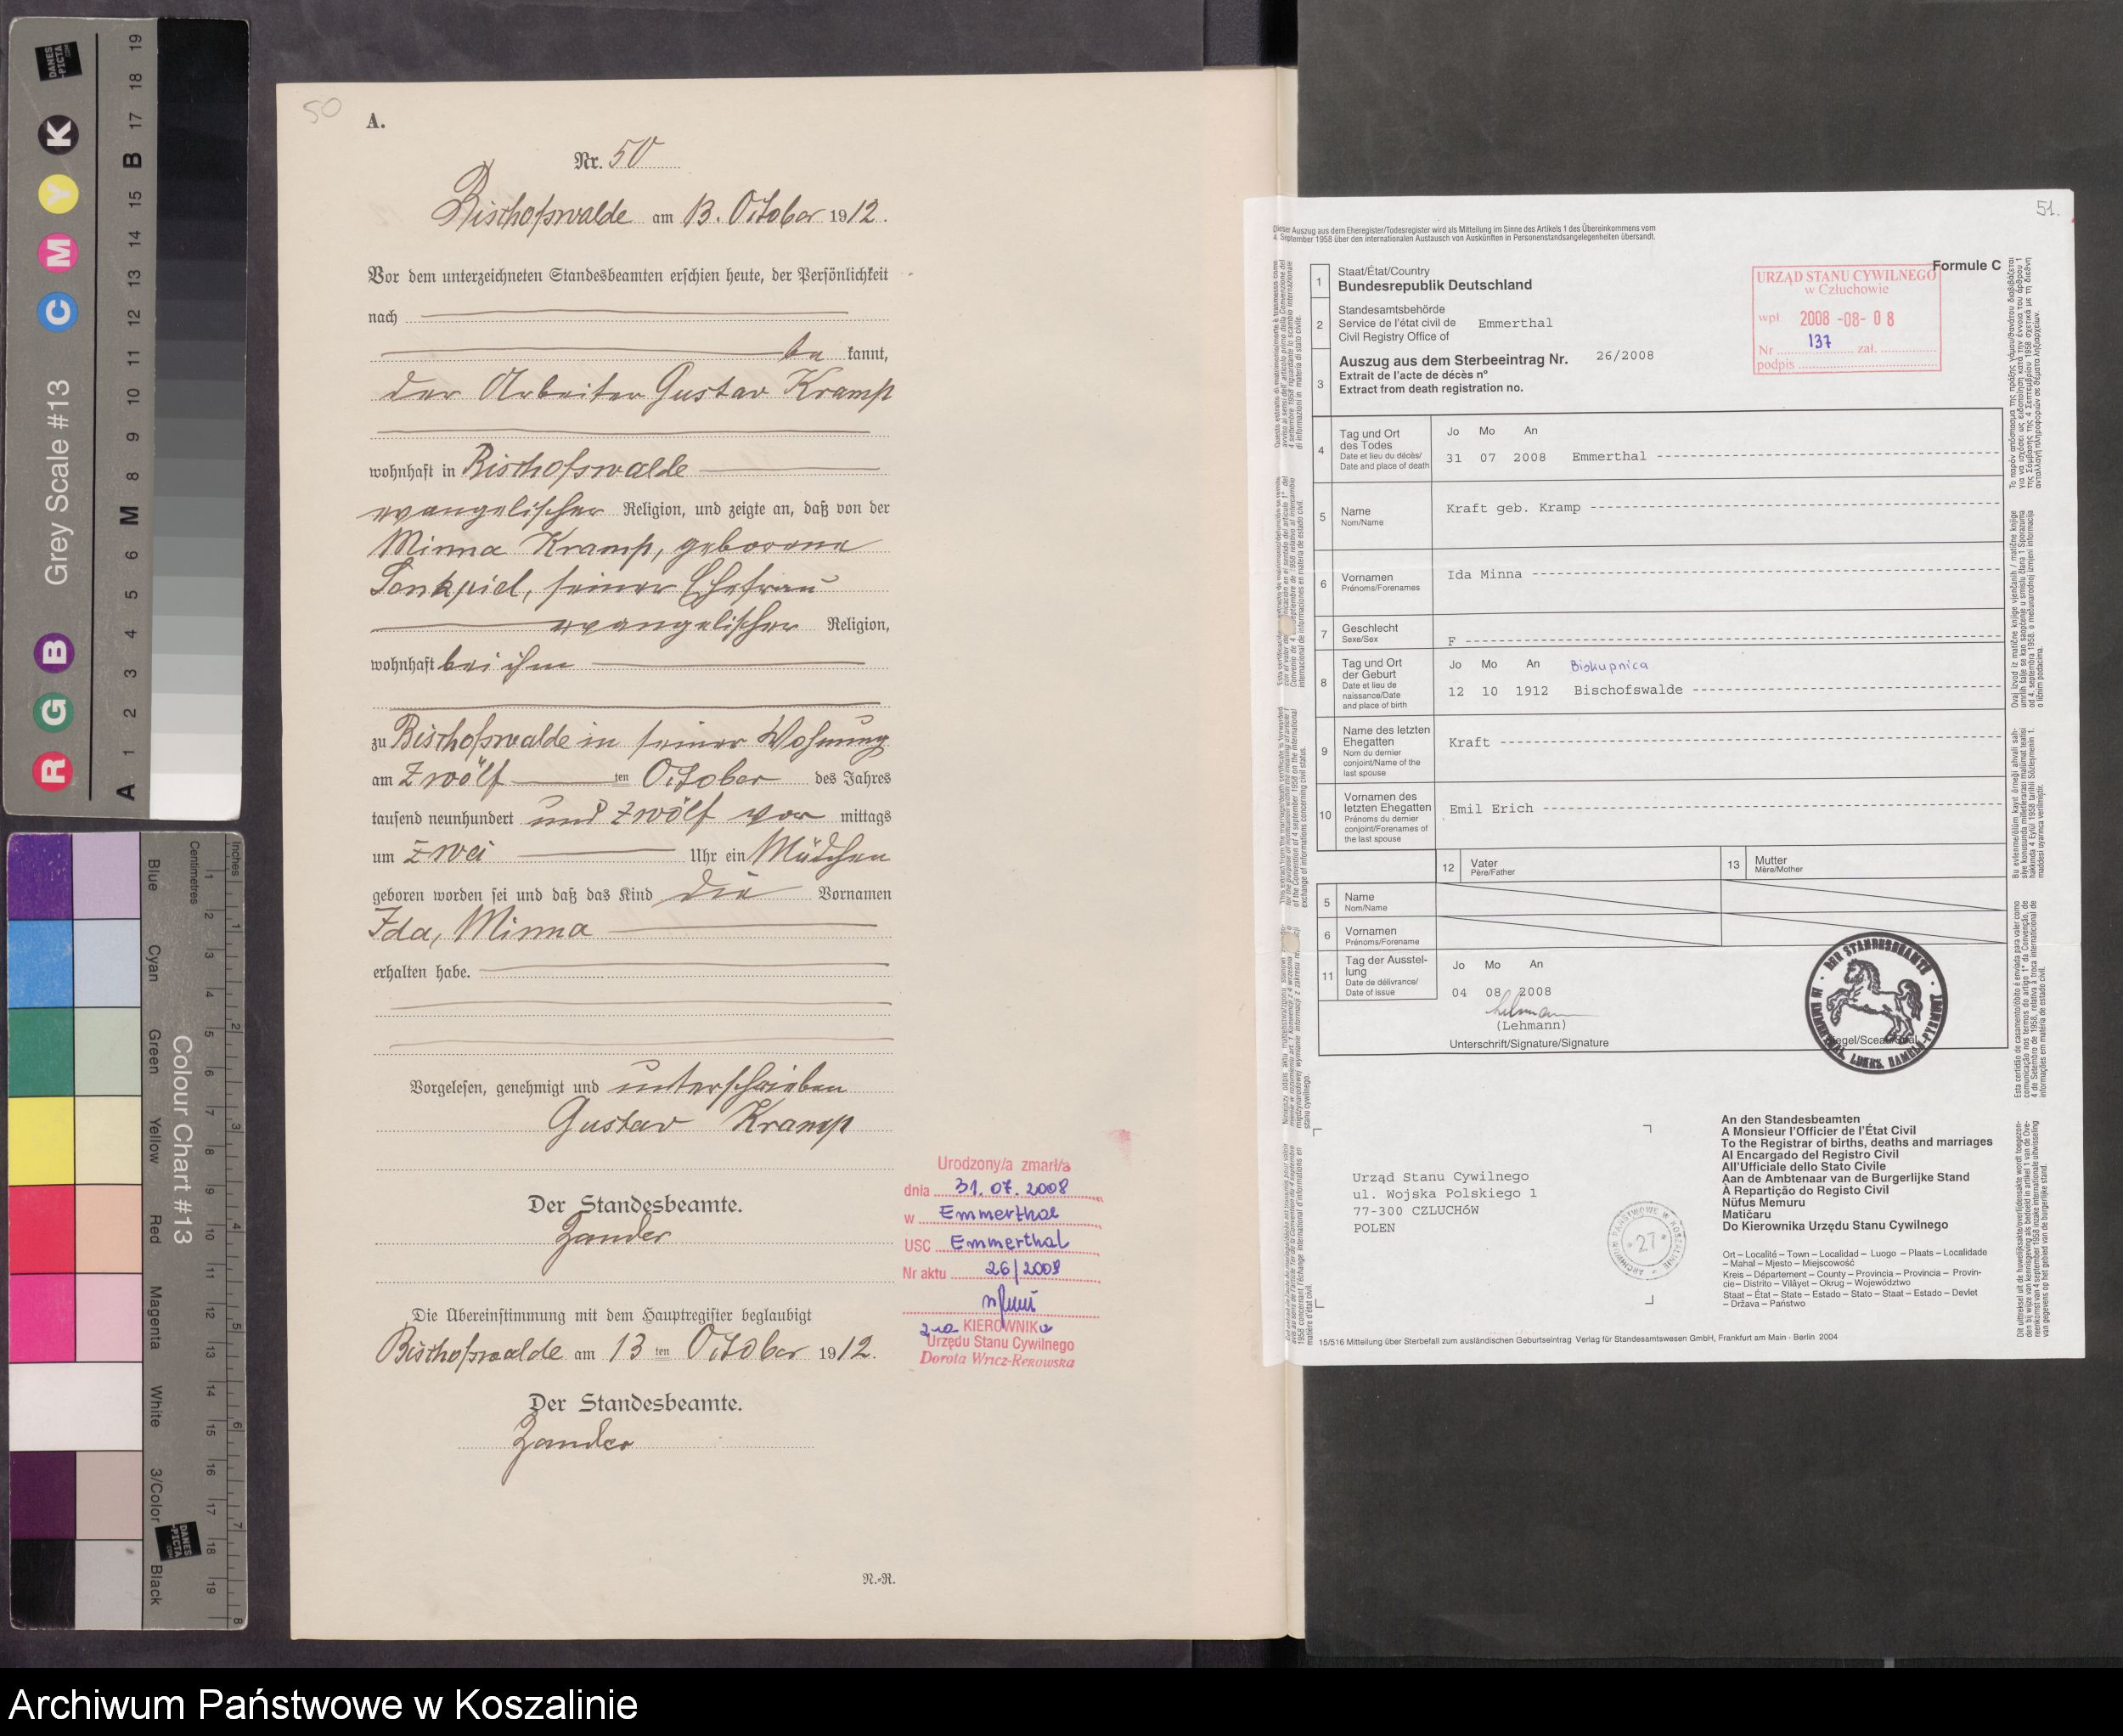 50
A.
Nr. 50
Bischofswalde am 13. October 1912.
Vor dem unterzeichneten Standesbeamten erschien heute, der Persönlichkeit
nach
be kannt,
der Arbeiter Gustav Kramp
wohnhaft in Bischofswalde
evangelischer Religion, und zeigte an, daß von der
Minna Kramp, geborene
Sonkpiel, seiner Ehefrau
evangelischer Religion,
wohnhaft bei ihm
zu Bischofswalde in seiner Wohnung
am zwölf ten October des Jahres
tausend neunhundert und zwölf vor mittags
um zwei Uhr ein Mädchen
geboren worden sei und daß das Kind die Vornamen
Ida, Minna
erhalten habe.
Vorgelesen, genehmigt und unterschrieben
Gustav Kramp
Der Standesbeamte.
Zander
Die Übereinstimmung mit dem Hauptregister beglaubigt
Bischofswalde am 13 ten October 1912.
Der Standesbeamte.
Zander
N.-R.
Urodzony/a zmarł/a
dnia 31.07.2008
w Emmerthal
USC Emmerthal
Nr aktu 26/2008
KIEROWNIK
Urzędu Stanu Cywilnego
51.
Dieser Auszug aus dem Eheregister/Todesregister wird als Mitteilung im Sinne des Artikels 1 des Übereinkommens vom
4. September 1958 über den internationalen Austausch von Auskünften in Personenstandsangelegenheiten übersandt.
Formule C
URZĄD STANU CYWILNEGO
w Człuchowie
wpł 2008 -08- 08
Nr 137 zał.
podpis
1 Staat/État/Country
Bundesrepublik Deutschland
2 Standesamtsbehörde
Service de l'état civil de Emmerthal
Civil Registry Office of
3 Auszug aus dem Sterbeeintrag Nr. 26/2008
Extrait de l'acte de décès n°
Extract from death registration no.
4 Tag und Ort des Todes
Date et lieu du décès/
Date and place of death
Jo Mo An
31 07 2008 Emmerthal
5 Name
Nom/Name
Kraft geb. Kramp
6 Vornamen
Prénoms/Forenames
Ida Minna
7 Geschlecht
Sexe/Sex
F
8 Tag und Ort
der Geburt
Date et lieu de
naissance/Date
and place of birth
Jo Mo An Biskupnica
12 10 1912 Bischofswalde
9 Name des letzten
Ehegatten
Nom du dernier
conjoint/Name of the
last spouse
Kraft
10 Vornamen des
letzten Ehegatten
Prénoms du dernier
conjoint/Forenames of
the last spouse
Emil Erich
12 Vater
Père/Father
13 Mutter
Mère/Mother
5 Name
Nom/Name
6 Vornamen
Prénoms/Forename
11 Tag der Ausstel-
lung
Date de délivrance/
Date of issue
Jo Mo An
04 08 2008
(Lehmann)
Unterschrift/Signature/Signature
DER STANDESBEAMTE
Urząd Stanu Cywilnego
ul. Wojska Polskiego 1
77-300 CZLUCHóW
POLEN
ARCHIWUM PAŃSTWOWE W KOSZALINIE
27
An den Standesbeamten
A Monsieur l'Officier de l'État Civil
To the Registrar of births, deaths and marriages
Al Encargado del Registro Civil
All'Ufficiale dello Stato Civile
Aan de Ambtenaar van de Burgerlijke Stand
À Repartição do Registo Civil
Nüfus Memuru
Matičaru
Do Kierownika Urzędu Stanu Cywilnego
Ort – Localité – Town – Localidad – Luogo – Plaats – Localidade
– Mahal – Mjesto – Miejscowość
Kreis – Département – County – Provincia – Provincia – Provin-
cie – Distrito – Vilâyet – Okrug – Województwo
Staat – État – State – Estado – Stato – Staat – Estado – Devlet
– Država – Państwo
15/516 Mitteilung über Sterbefall zum ausländischen Geburtseintrag Verlag für Standesamtswesen GmbH, Frankfurt am Main · Berlin 2004
Grey Scale #13
R G B C M Y K
A 1 2 3 4 5 6 M 8 9 10 11 12 13 14 15 B 17 18 19
DANES
-PICTA
.COM
Colour Chart #13
Blue Cyan Green Yellow Red Magenta White 3/Color Black
Centimetres
1 2 3 4 5 6 7 8 9 10 11 12 13 14 15 16 17 18 19
Inches
1 2 3 4 5 6 7 8
Archiwum Państwowe w Koszalinie